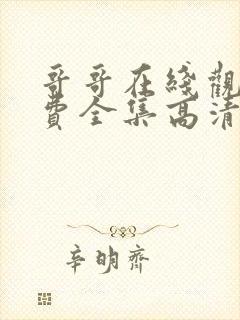 哥哥在綫觀
費全集高清
辛明齊